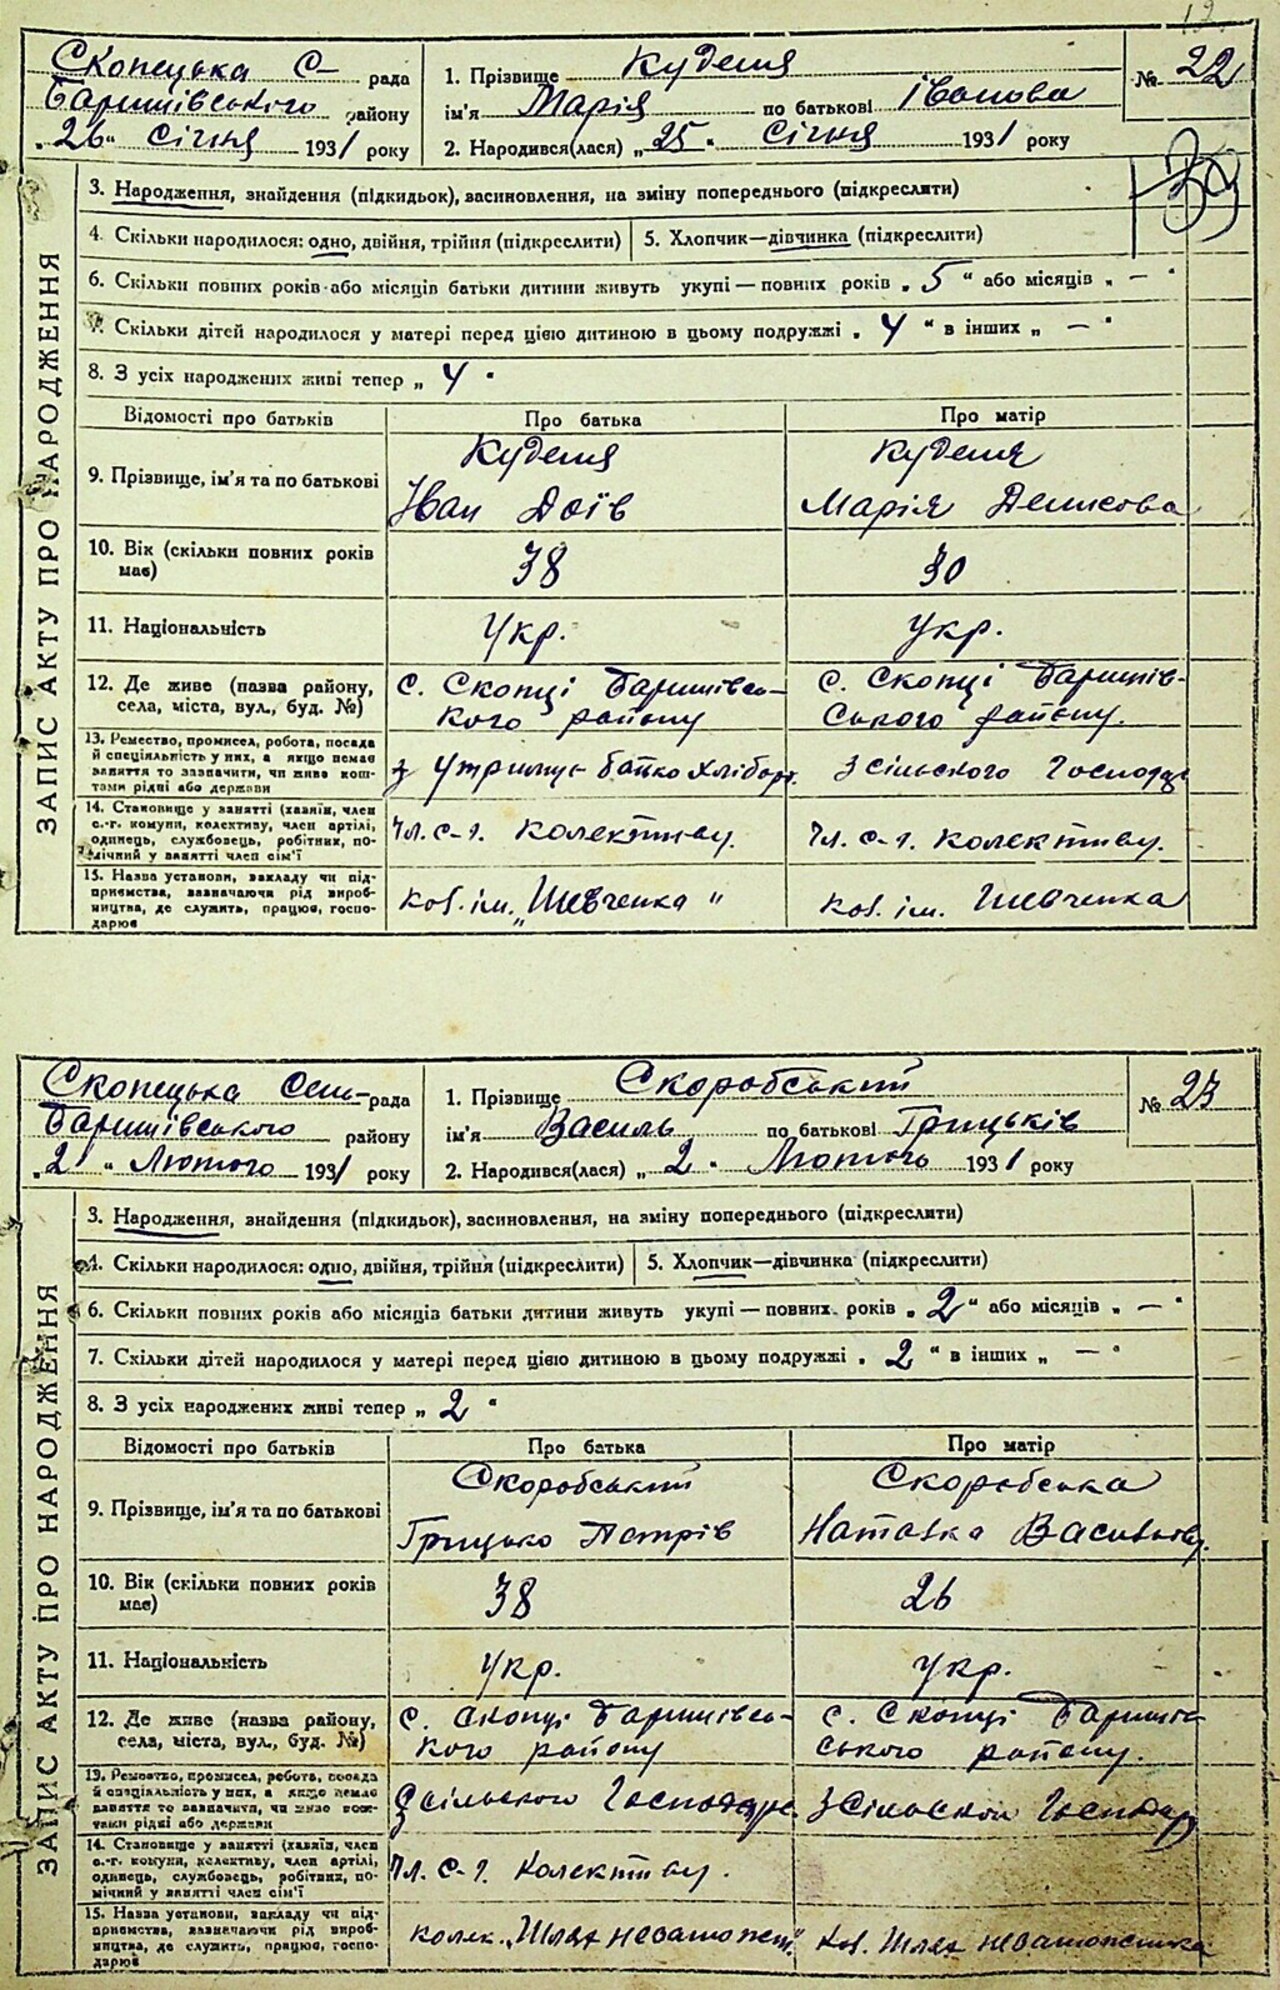 Скопецька С- рада
Баришівського району
„26“ січня 1931 року
1. Прізвище Куделя
ім'я Марія по батькові Іванова
2. Народився(лася) „25“ Січня 1931 року
№ 22
39
ЗАПИС АКТУ ПРО НАРОДЖЕННЯ
3. Народження, знайдення (підкидьок), васиновлення, на зміну попереднього (підкреслити)
4. Скільки народилося: одно, двійня, трійня (підкреслити) 5. Хлопчик—дівчинка (підкреслити)
6. Скільки повних років або місяців батьки дитини живуть укупі — повних років „5“ або місяців „—“
7. Скільки дітей народилося у матері перед цією дитиною в цьому подружжі „4“ в інших „—“
8. З усіх народжених живі тепер „4“
Відомості про батьків Про батька Про матір
9. Прізвище, ім'я та по батькові
Куделя
Іван
Куделя
Марія
10. Вік (скільки повних років має) 38 30
11. Національність Укр. Укр.
12. Де живе (назва району, села, міста, вул., буд. №)
с. Скопці Баришівсь-
кого району
с. Скопці Баришів-
ського району.
13. Ремество, промисел, робота, посада
й спеціяльність у них, а якщо немає
заняття то зазначити, чи живе кош-
тами рідні або держави
з
З сільського Господар
14. Становище у занятті (хазяїн, член
с.-г. комуни, колективу, член артілі,
одинець, службовець, робітник, по-
мічний у занятті член сім'ї
Чл. с-г. колективу.
Чл. с-г. колективу.
15. Назва установи, закладу чи під-
приємства, зазначаючи рід вироб-
ництва, де служить, працює, госпо-
дарює
кол. ім. „Шевченка“
кол. ім. Шевченка
Скопецька Сель- рада
Баришівського району
„2“ Лютого 1931 року
1. Прізвище Скоробський
ім'я Василь по батькові Грицьків
2. Народився(лася) „2“ Лютого 1931 року
№ 23
ЗАПИС АКТУ ПРО НАРОДЖЕННЯ
3. Народження, знайдення (підкидьок), васиновлення, на зміну попереднього (підкреслити)
4. Скільки народилося: одно, двійня, трійня (підкреслити) 5. Хлопчик—дівчинка (підкреслити)
6. Скільки повних років або місяців батьки дитини живуть укупі — повних років „2“ або місяців „—“
7. Скільки дітей народилося у матері перед цією дитиною в цьому подружжі „2“ в інших „—“
8. З усіх народжених живі тепер „2“
Відомості про батьків Про батька Про матір
9. Прізвище, ім'я та по батькові
Скоробський
Грицько Петрів
Скоробська
Наталка Васильов.
10. Вік (скільки повних років має) 38 26
11. Національність Укр. Укр.
12. Де живе (назва району, села, міста, вул., буд. №)
с. Скопці Баришівсь-
кого району
с. Скопці Баришів-
ського району.
13. Ремество, промисел, робота, посада
й спеціяльність у них, а якщо немає
заняття то зазначити, чи живе кош-
тами рідні або держави
З сільського Господарс.
З Сільського Господар
14. Становище у занятті (хазяїн, член
с.-г. комуни, колективу, член артілі,
одинець, службовець, робітник, по-
мічний у занятті член сім'ї
Чл. с-г. колективу.
15. Назва установи, закладу чи під-
приємства, зазначаючи рід вироб-
ництва, де служить, працює, госпо-
дарює
колек. „Шлях незаможн.“
кол. Шлях незаможника